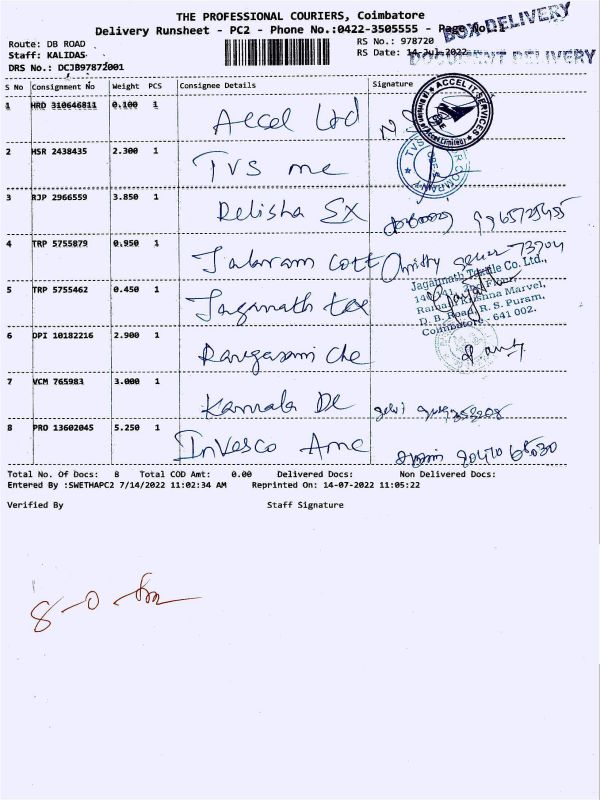 THE PROFESSIONAL COURIERS, Coimbatore
Delivery Runsheet - PC2 - Phone No.:0422-3505555 - Page No.:1
BOX DELIVERY
DOCUMENT DELIVERY
Route: DB ROAD
RS No.: 978720
Staff: KALIDAS
RS Date: 14-Jul-2022
DRS No.: DCJB97872001
S No Consignment No Weight PCS Consignee Details Signature
1 HRD 310646811 0.100 1 Accel Ltd
ACCEL IT SERVICES
2 HSR 2438435 2.300 1 TVS me
3 RJP 2966559 3.850 1 Relisha SX
4 TRP 5755879 0.950 1 Jalaram cott Christy
5 TRP 5755462 0.450 1 Jaganath tex
Jagannath Textile Co. Ltd.,
Krishna Marvel,
D. B. Road, R. S. Puram,
Coimbatore - 641 002.
6 OPI 10182216 2.900 1 Rangasami che
7 VCM 765983 3.000 1 Kamala De
8 PRO 13602045 5.250 1 Invesco Ame
Total No. Of Docs: 8 Total COD Amt: 0.00 Delivered Docs: Non Delivered Docs:
Entered By :SWETHAPC2 7/14/2022 11:02:34 AM Reprinted On: 14-07-2022 11:05:22
Verified By Staff Signature
8-0